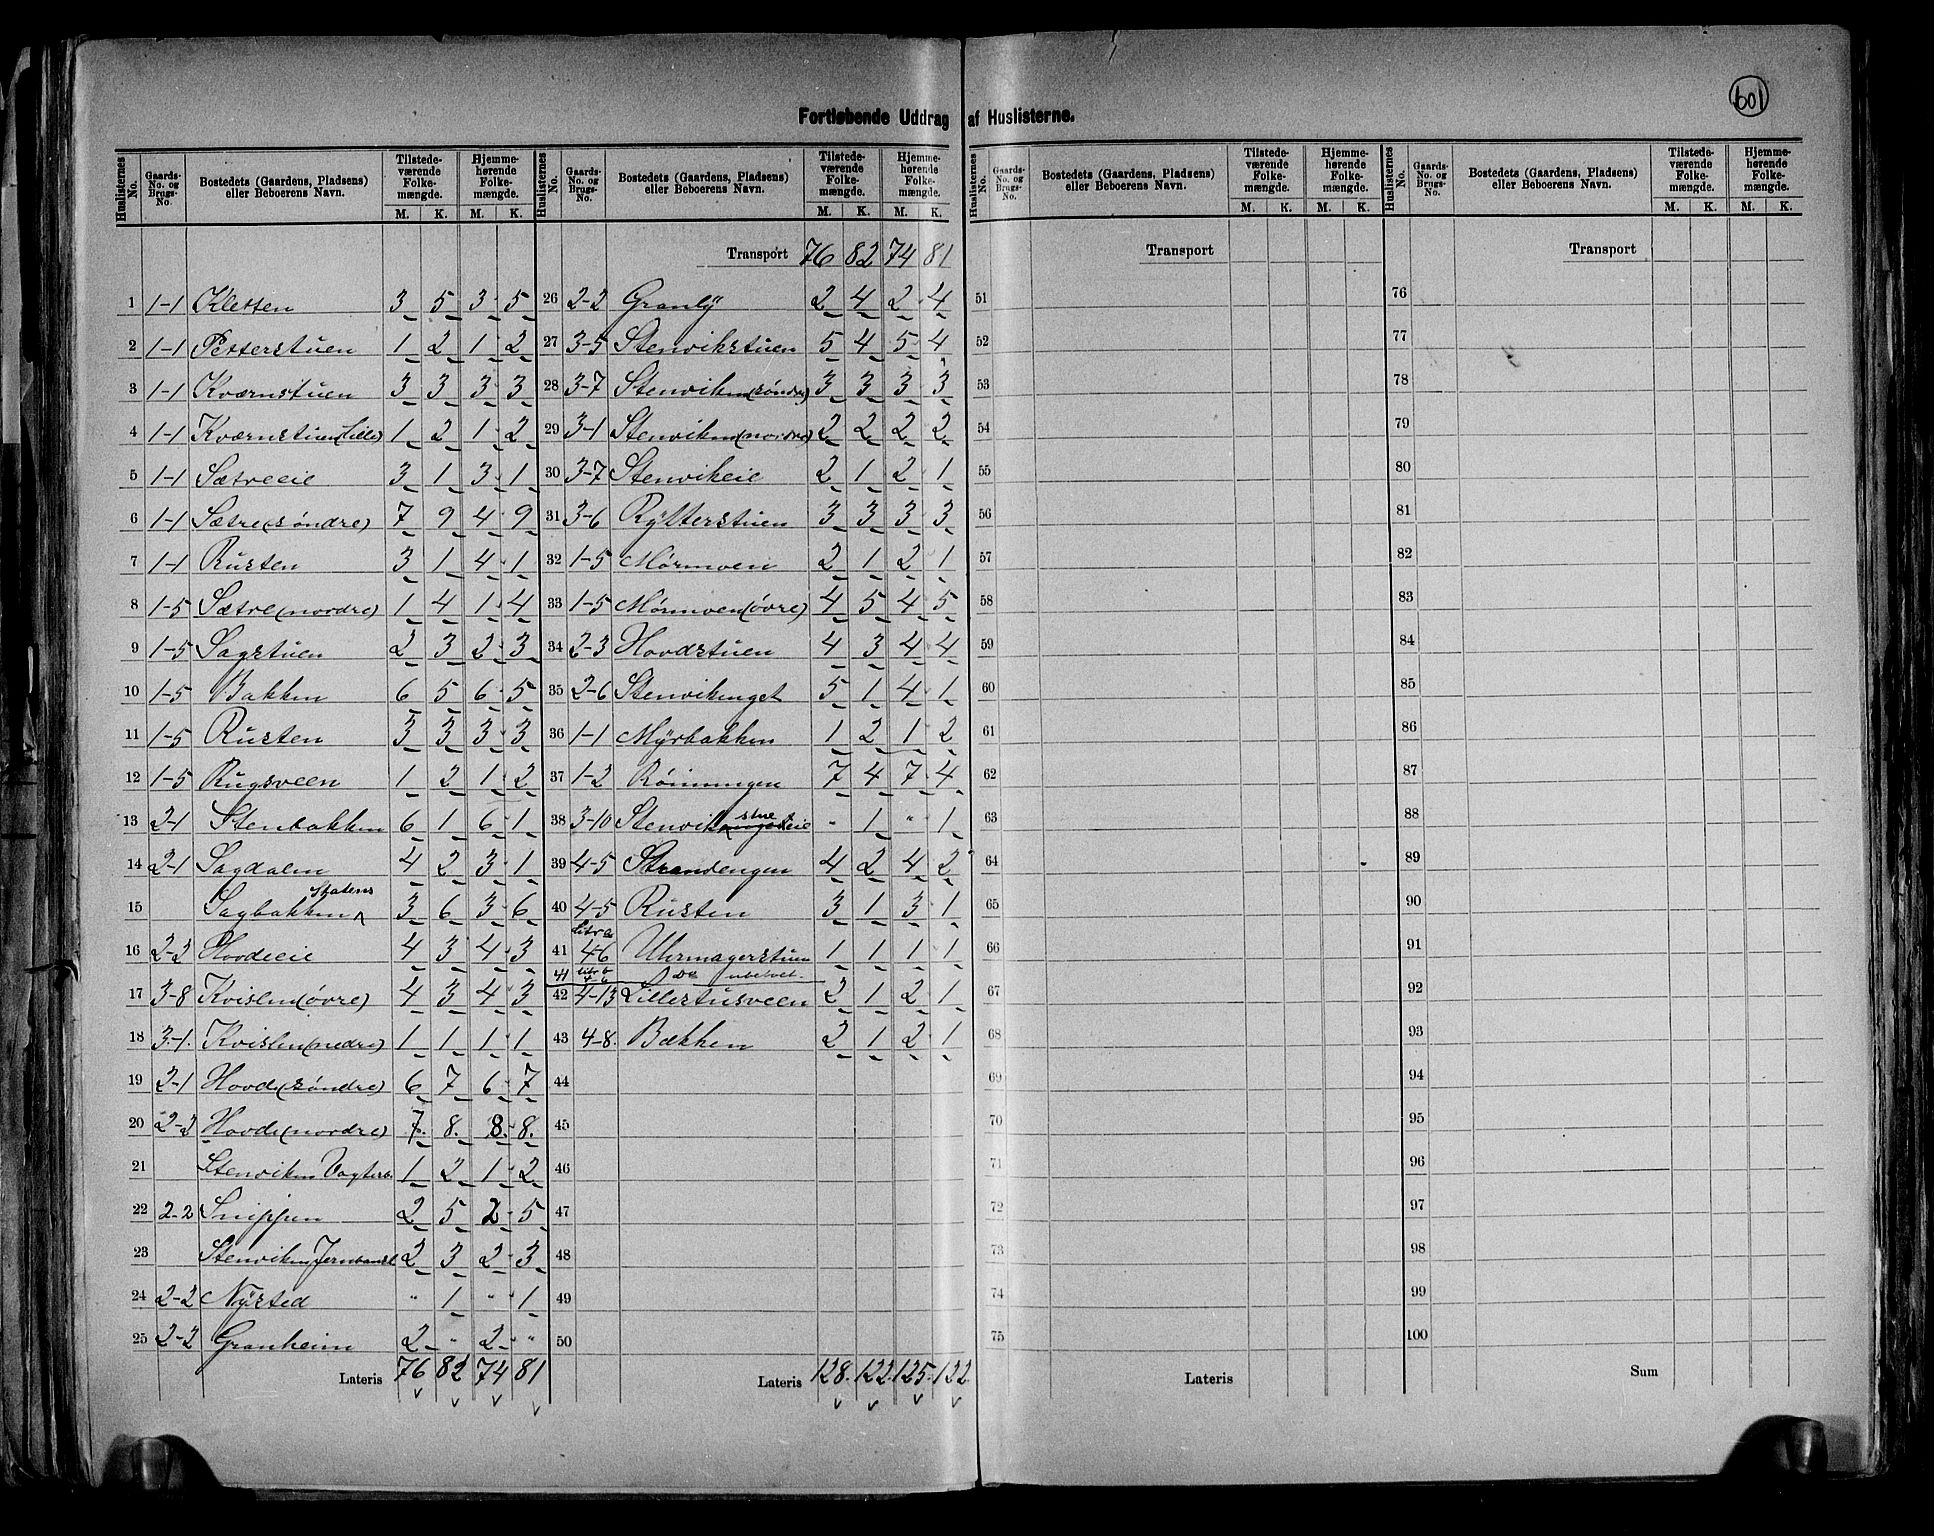 601
Fortløbende Uddrag af Huslisterne.
Huslisternes No. | Gaards-No. og Brugs-No. | Bostedets (Gaardens, Pladsens) eller Beboerens Navn. | Tilstedeværende Folkemængde. M. K. | Hjemmehørende Folkemængde. M. K.
1 1-1 Kletten 3 5 3 5
2 1-1 Petterstuen 1 2 1 2
3 1-1 Kværnstuen 3 3 3 3
4 1-1 Kværnstuen (lille) 1 2 1 2
5 1-1 Sætreeie 3 1 3 1
6 1-1 Sætre (søndre) 7 9 4 9
7 1-1 Rusten 3 1 4 1
8 1-5 Sætre (nordre) 1 4 1 4
9 1-5 Sagstuen 2 3 2 3
10 1-5 Bakken 6 5 6 5
11 1-5 Rusten 3 3 3 3
12 1-5 Rugsveen 1 2 1 2
13 2-1 Stenbakken 6 1 6 1
14 2-1 Sagdalen 4 2 3 1
15 Sagbakken Statens 3 6 3 6
16 2-2 Hovdeeie 4 3 4 3
17 3-8 Kvislen (øvre) 4 3 4 3
18 3-1. Kvislen (nedre) 1 1 1 1
19 2-1 Hovde (søndre) 6 7 6 7
20 2-3 Hovde (nordre) 7. 8. 8. 8.
21 Stenviken Vogterb. 1 2 1 2
22 2-2 Snippen 2 5 2 5
23 Stenviken Jernbanest 2 3 2 3
24 2-2 Nÿsted " 1 " 1
25 2-2 Granheim 2 " 2 "
Lateris 76 82 74 81
Huslisternes No. | Gaards-No. og Brugs-No. | Bostedets (Gaardens, Pladsens) eller Beboerens Navn. | Tilstedeværende Folkemængde. M. K. | Hjemmehørende Folkemængde. M. K.
Transport 76 82 74 81
26 2-2 Granlÿ 2 4 2 4
27 3-5 Stenvikstuen 5 4 5 4
28 3-7 Stenviken (søndre) 3 3 3 3
29 3-1 Stenviken (nordre) 2 2 2 2
30 3-7 Stenvikeie 2 1 2 1
31 3-6 Rÿtterstuen 3 3 3 3
32 1-5 Mørmoen 2 1 2 1
33 1-5 Mørmoen (øvre) 4 5 4 5
34 2-3 Hovdstuen 4 3 4 4
35 2-6 Stenvikenget 5 1 4 1
36 1-1 Mÿrbakken 1 2 1 2
37 1-2 Rønningen 7 4 7 4
38 3-10 Stenvikeie " 1 " 1
39 4-5 Strandengen 4 2 4 2
40 4-5 Rusten 3 1 3 1
41 litra 4-6 Uhrmagerstuen 1 1 1 1
41 litr b 4-6 Do ubeboet.
42 4-13 Lillertusveen 2 1 2 1
43 4-8. Bækken 2 1 2 1
44
45
46
47
48
49
50
Lateris 128. 122. 125. 122.
Huslisternes No. | Gaards-No. og Brugs-No. | Bostedets (Gaardens, Pladsens) eller Beboerens Navn. | Tilstedeværende Folkemængde. M. K. | Hjemmehørende Folkemængde. M. K.
Transport
51
52
53
54
55
56
57
58
59
60
61
62
63
64
65
66
67
68
69
70
71
72
73
74
75
Lateris
Huslisternes No. | Gaards-No. og Brugs-No. | Bostedets (Gaardens, Pladsens) eller Beboerens Navn. | Tilstedeværende Folkemængde. M. K. | Hjemmehørende Folkemængde. M. K.
Transport
76
77
78
79
80
81
82
83
84
85
86
87
88
89
90
91
92
93
94
95
96
97
98
99
100
Sum